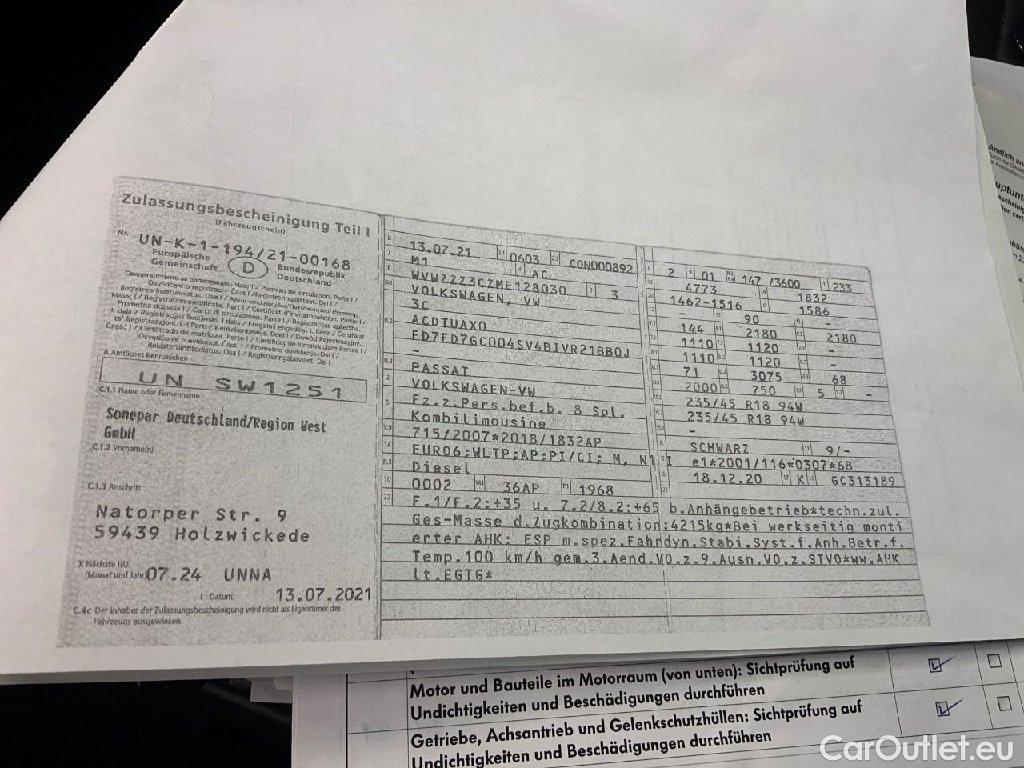 Zulassungsbescheinigung Teil I
(Fahrzeugschein)
Nr. UN-K-1-194/21-00168
Europäische Gemeinschaft D Bundesrepublik Deutschland
A Amtliches Kennzeichen
UN SW1251
C.1.1 Name oder Firmenname
Sonepar Deutschland/Region West
GmbH
C.1.2 Vorname(n)
C.1.3 Anschrift
Natorper Str. 9
59439 Holzwickede
X Nächste HU
(Monat und Jahr) 07.24 UNNA
I Datum: 13.07.2021
C.4c Der Inhaber der Zulassungsbescheinigung wird nicht als Eigentümer des
Fahrzeugs ausgewiesen.
13.07.21 0603 CON000892
M1 AC
WVWZZZ3CZME128030 3
VOLKSWAGEN, VW
3C
ACDTUAX0
FD7FD7GC004SV4BIVR218B0J
-
PASSAT
VOLKSWAGEN-VW
Fz.z.Pers.bef.b. 8 Spl.
Kombilimousine
715/2007*2018/1832AP
EURO6;WLTP;AP;PI/CI; M, N1 I
Diesel
0002 36AP 1968
2 01 147 /3600 233
4773 1832
1462-1516 1586
- 90 -
144 2180 2180
1110 1120 -
1110 1120 -
71 3075 68
2000 750 5 -
235/45 R18 94W
235/45 R18 94W
-
SCHWARZ 9/-
e1*2001/116*0307*68
18.12.20 K GC313189
F.1/F.2:+35 u. 7.2/8.2:+65 b.Anhängebetrieb*techn.zul.
Ges-Masse d.Zugkombination:4215kg*Bei werkseitig monti
erter AHK: ESP m.spez.Fahrdyn.Stabi.Syst.f.Anh.Betr.f.
Temp.100 km/h gem.3.Aend.VO.z.9.Ausn.VO.z.STVO*ww.AHK
lt.EGTG*
Motor und Bauteile im Motorraum (von unten): Sichtprüfung auf
Undichtigkeiten und Beschädigungen durchführen
Getriebe, Achsantrieb und Gelenkschutzhüllen: Sichtprüfung auf
Undichtigkeiten und Beschädigungen durchführen
CarOutlet.eu